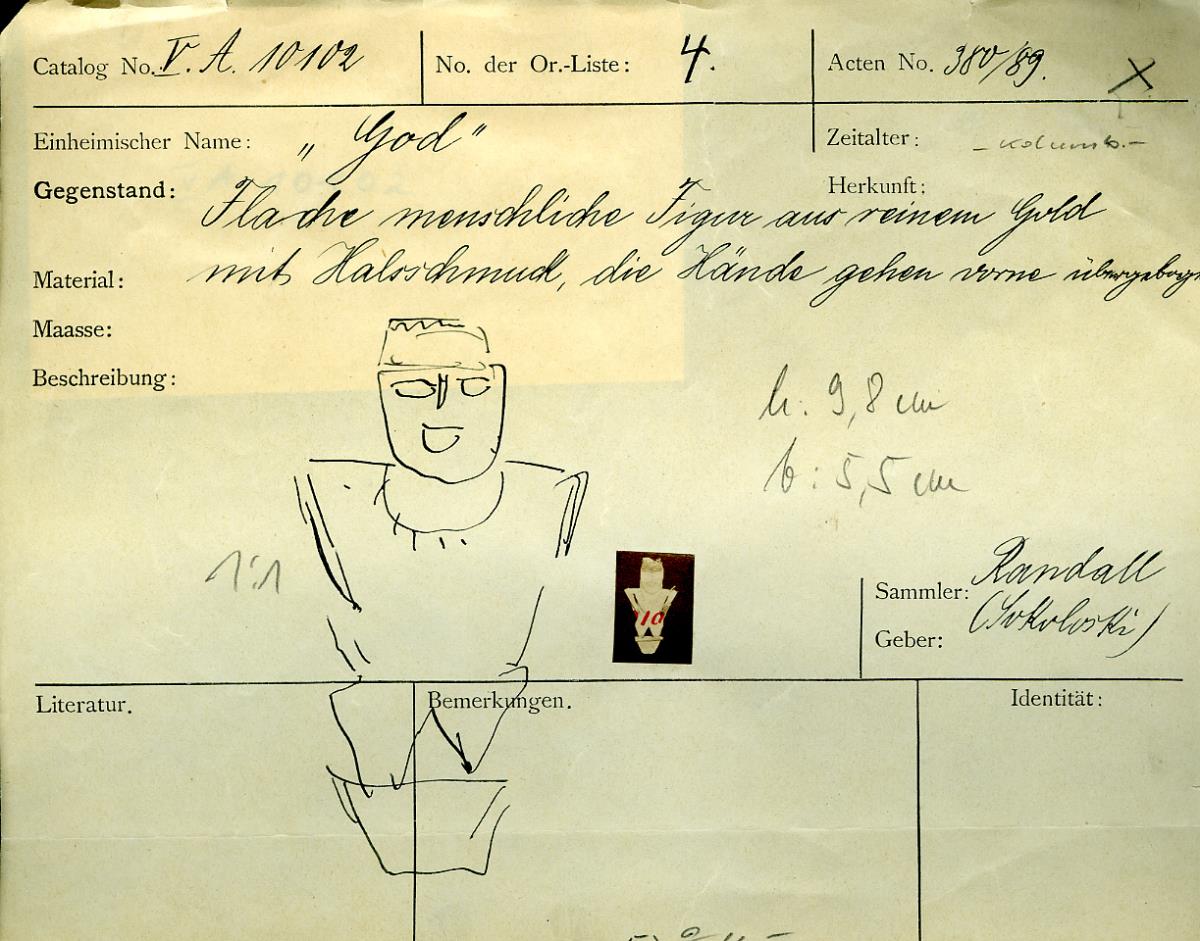 Catalog No. V. A. 10102
No. der Or.-Liste: 4.
Acten No. 380/89.
X
Einheimischer Name: „ God "
Zeitalter:
Gegenstand:
Herkunft:
Flache menschliche Figur aus reinem Gold
Material:
mit Halsschmuck, die Hände gehen vorne übergebog
Maasse:
Beschreibung:
h: 9,8 cm
b: 5,5 cm
1:1
Sammler: Randall
Geber: (Sokoloski)
Literatur.
Bemerkungen.
Identität: